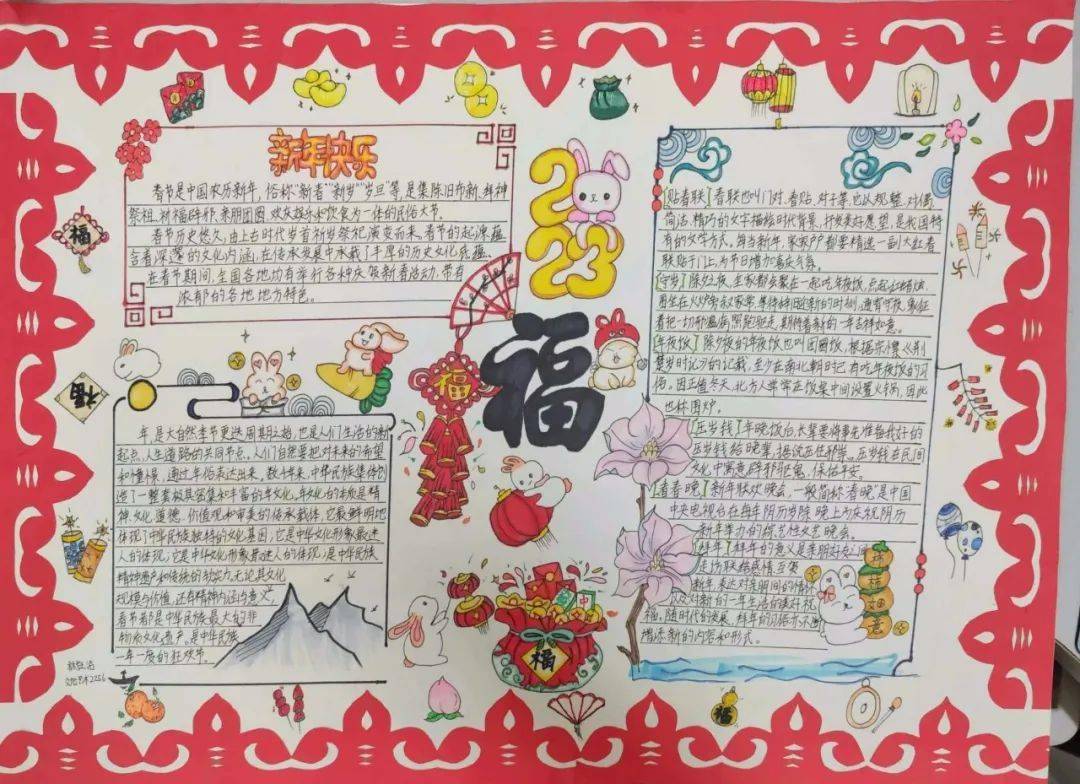 新年快乐
春节是中国农历新年，俗称"新春""新岁""岁旦"等，是集除旧布新、拜神
祭祖、祈福辟邪、亲朋团圆、欢庆娱乐和饮食为一体的民俗大节。
春节历史悠久，由上古时代岁首祈岁祭祀演变而来。春节的起源蕴
含着深邃的文化内涵，在传承发展中承载了丰厚的历史文化底蕴。
在春节期间，全国各地均有举行各种庆贺新春活动，带有
浓郁的各地地方特色。
2023
福
福
福
福
年，是大自然季节更迭周期之始，也是人们生活的新
起点，人生道路的共同节点，人们自然要把对未来的希望
和憧憬，通过年俗表达出来。数千年来，中华民族集体创
造了一整套极其密集和丰富的年文化。年文化的本质是精
神文化、道德、价值观和审美的传承载体，它最鲜明地
体现了中华民族独特的文化基因，它是中华文化形象最迷
人的体现，它是中华文化形象最迷人的体现，是中华民族
精神遗产和传统的软实力。无论其文化
规模与价值，还有精神内涵与意义，
春节都是中华民族最大的非
物质文化遗产。是中华民族
一年一度的狂欢节。
[贴春联]春联也叫门对、春贴、对子等，也以规整、对偶、
简洁、精巧的文字描绘时代背景，抒发美好愿望，是我国特
有的文学方式。每当新年，家家户户都要精选一副大红春
联贴于门上，为节日增加喜庆气氛。
[守岁]除夕夜，全家都会聚在一起吃年夜饭，点起红蜡烛，
围坐在火炉旁叙家常，等待辞旧迎新的时刻，通宵守夜，象征
着把一切邪瘟病照跑驱走，期待着新的一年吉祥如意。
[年夜饭]除夕夜的年夜饭也叫团圆饭，根据宗懔《荆
楚岁时记》的记载，至少在南北朝时已有吃年夜饭的习
俗，因正值冬天，北方人常常在饭桌中间设置火锅，因此
也称围炉。
[压岁钱]年晚饭后，长辈要将事先准备好的
压岁钱给晚辈，据说压住邪祟。压岁钱在民间
文化中寓意辟邪驱鬼，保佑平安。
[看春晚]新年联欢晚会，一般简称"春晚"是中国
中央电视台在每年阴历岁除晚上为庆祝阴历
新年举办的综艺性文艺晚会。
[拜年]拜年的意义是亲朋好友间
走访联络感情互贺
新年，表达对亲朋间的情怀
以及对新的一年生活的美好祝
福，随时代的发展，拜年的习俗亦不断
增添新的内容和形式。
福
福
2256